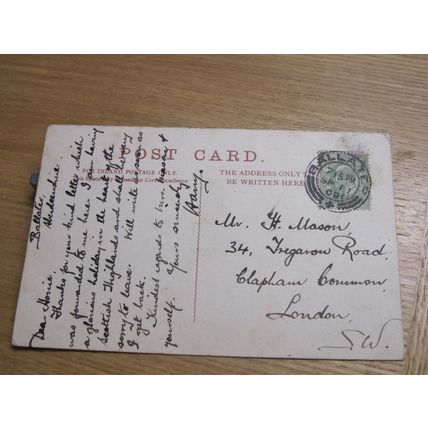 POST CARD.
FOR INLAND POSTAGE ONLY
THE ADDRESS ONLY
BE WRITTEN HERE
BALLATER
Ballater,
Aberdeenshire.
Dear
Thanks for your kind letter which
was forwarded to me here. I am having
a glorious holiday in the heart of the
Scottish Highlands and shall be very
sorry to leave. Will write soon as
I get back.
Kindest regards to Mrs. &
yourself. Yours sincerely
Harry.
Mr. H. Mason,
34, Tregarow Road,
Clapham Common,
London,
S.W.